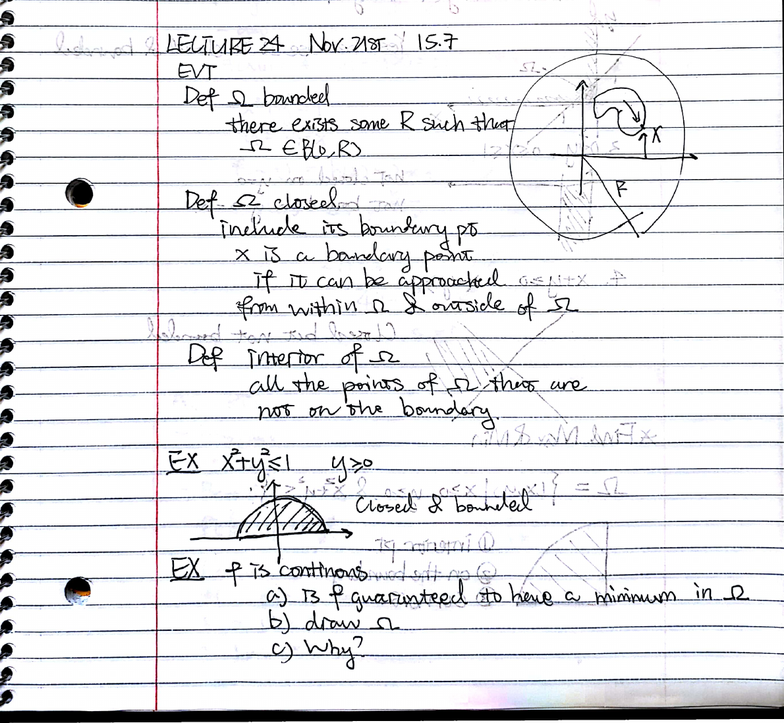 LECTURE 24 Nov. 21st 15.7
EVT
Def Ω bounded
there exists some R such that
Ω ∈ B(0, R)
x
R
Def Ω closed
include its boundary pt
x is a boundary point
if it can be approached
from within Ω & outside of Ω
Def interior of Ω
all the points of Ω that are
not on the boundary.
EX x²+y²≤1 y≥0
Closed & bounded
EX f is continous
a) is f guaranteed to have a minimum in Ω
b) draw Ω
c) Why?